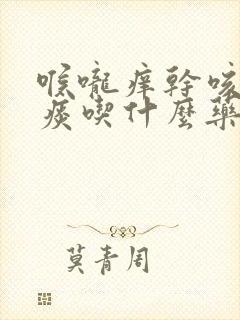 喉嚨痒幹咳
痰喫什麼藥
莫青周